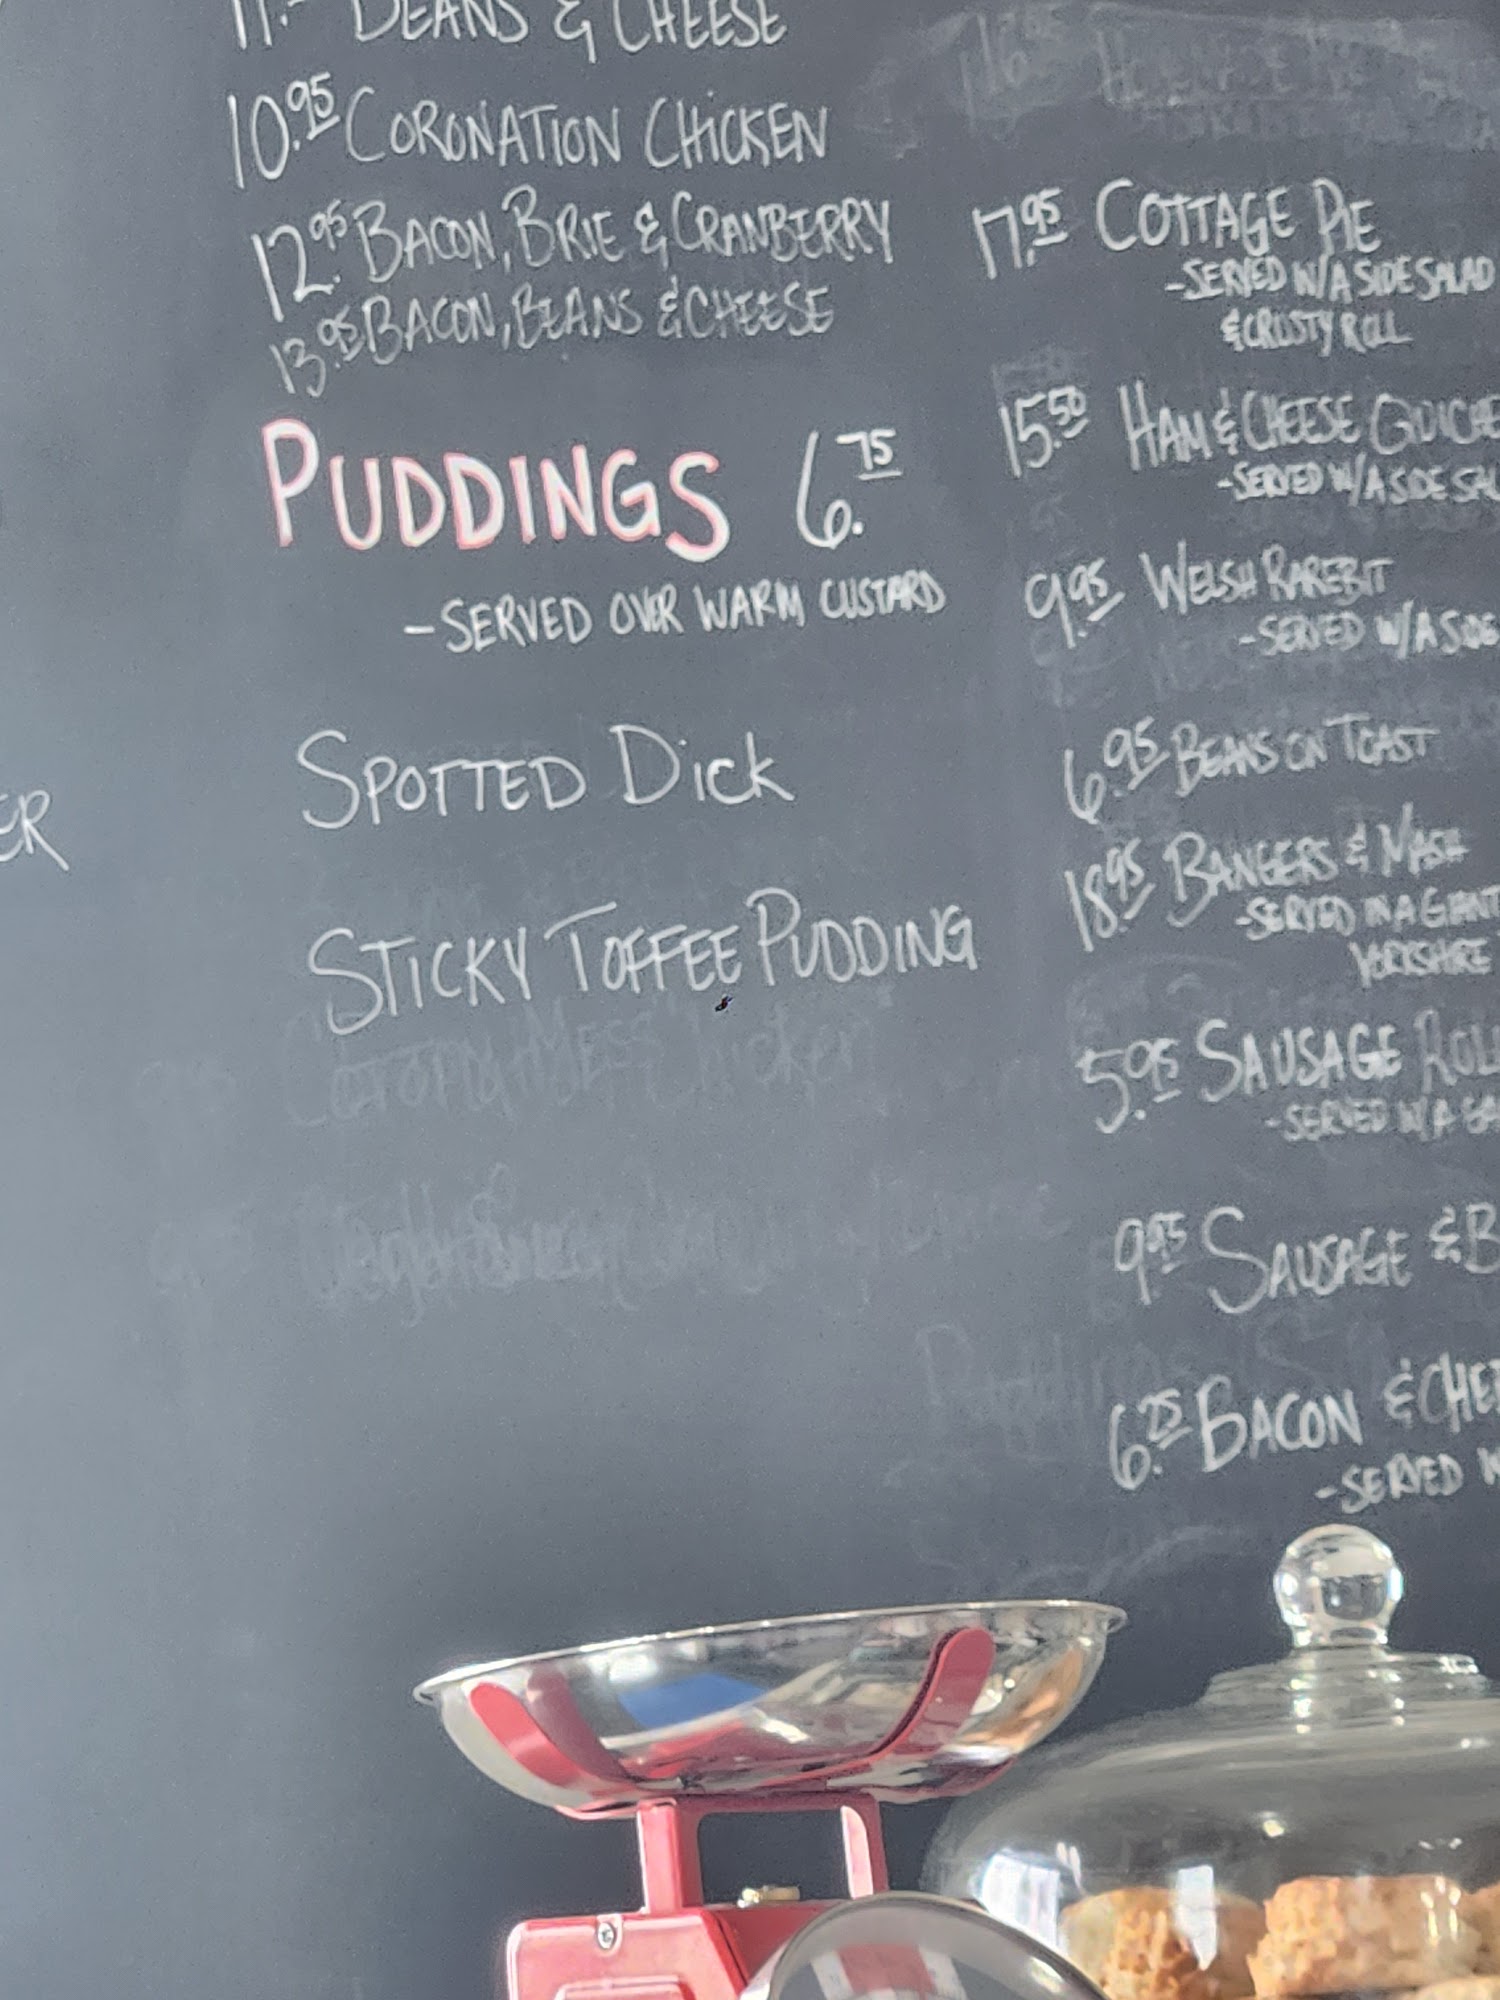 BEANS & CHEESE
10.95 CORONATION CHICKEN
12.95 BACON, BRIE & CRANBERRY
13.95 BACON, BEANS & CHEESE
PUDDINGS 6.75
-SERVED OVER WARM CUSTARD
SPOTTED DICK
STICKY TOFFEE PUDDING
ER
17.95 COTTAGE PIE
-SERVED W/A SIDE SALAD
& CRUSTY ROLL
15.50 HAM & CHEESE QUICHE
-SERVED W/A SIDE SAL
9.95 WELSH RAREBIT
-SERVED W/A SIDE
6.95 BEANS ON TOAST
18.95 BANGERS & MASH
-SERVED IN A GIANT
YORKSHIRE
5.95 SAUSAGE ROLL
-SERVED W/A
9.95 SAUSAGE & B
6.75 BACON & CHEE
-SERVED W